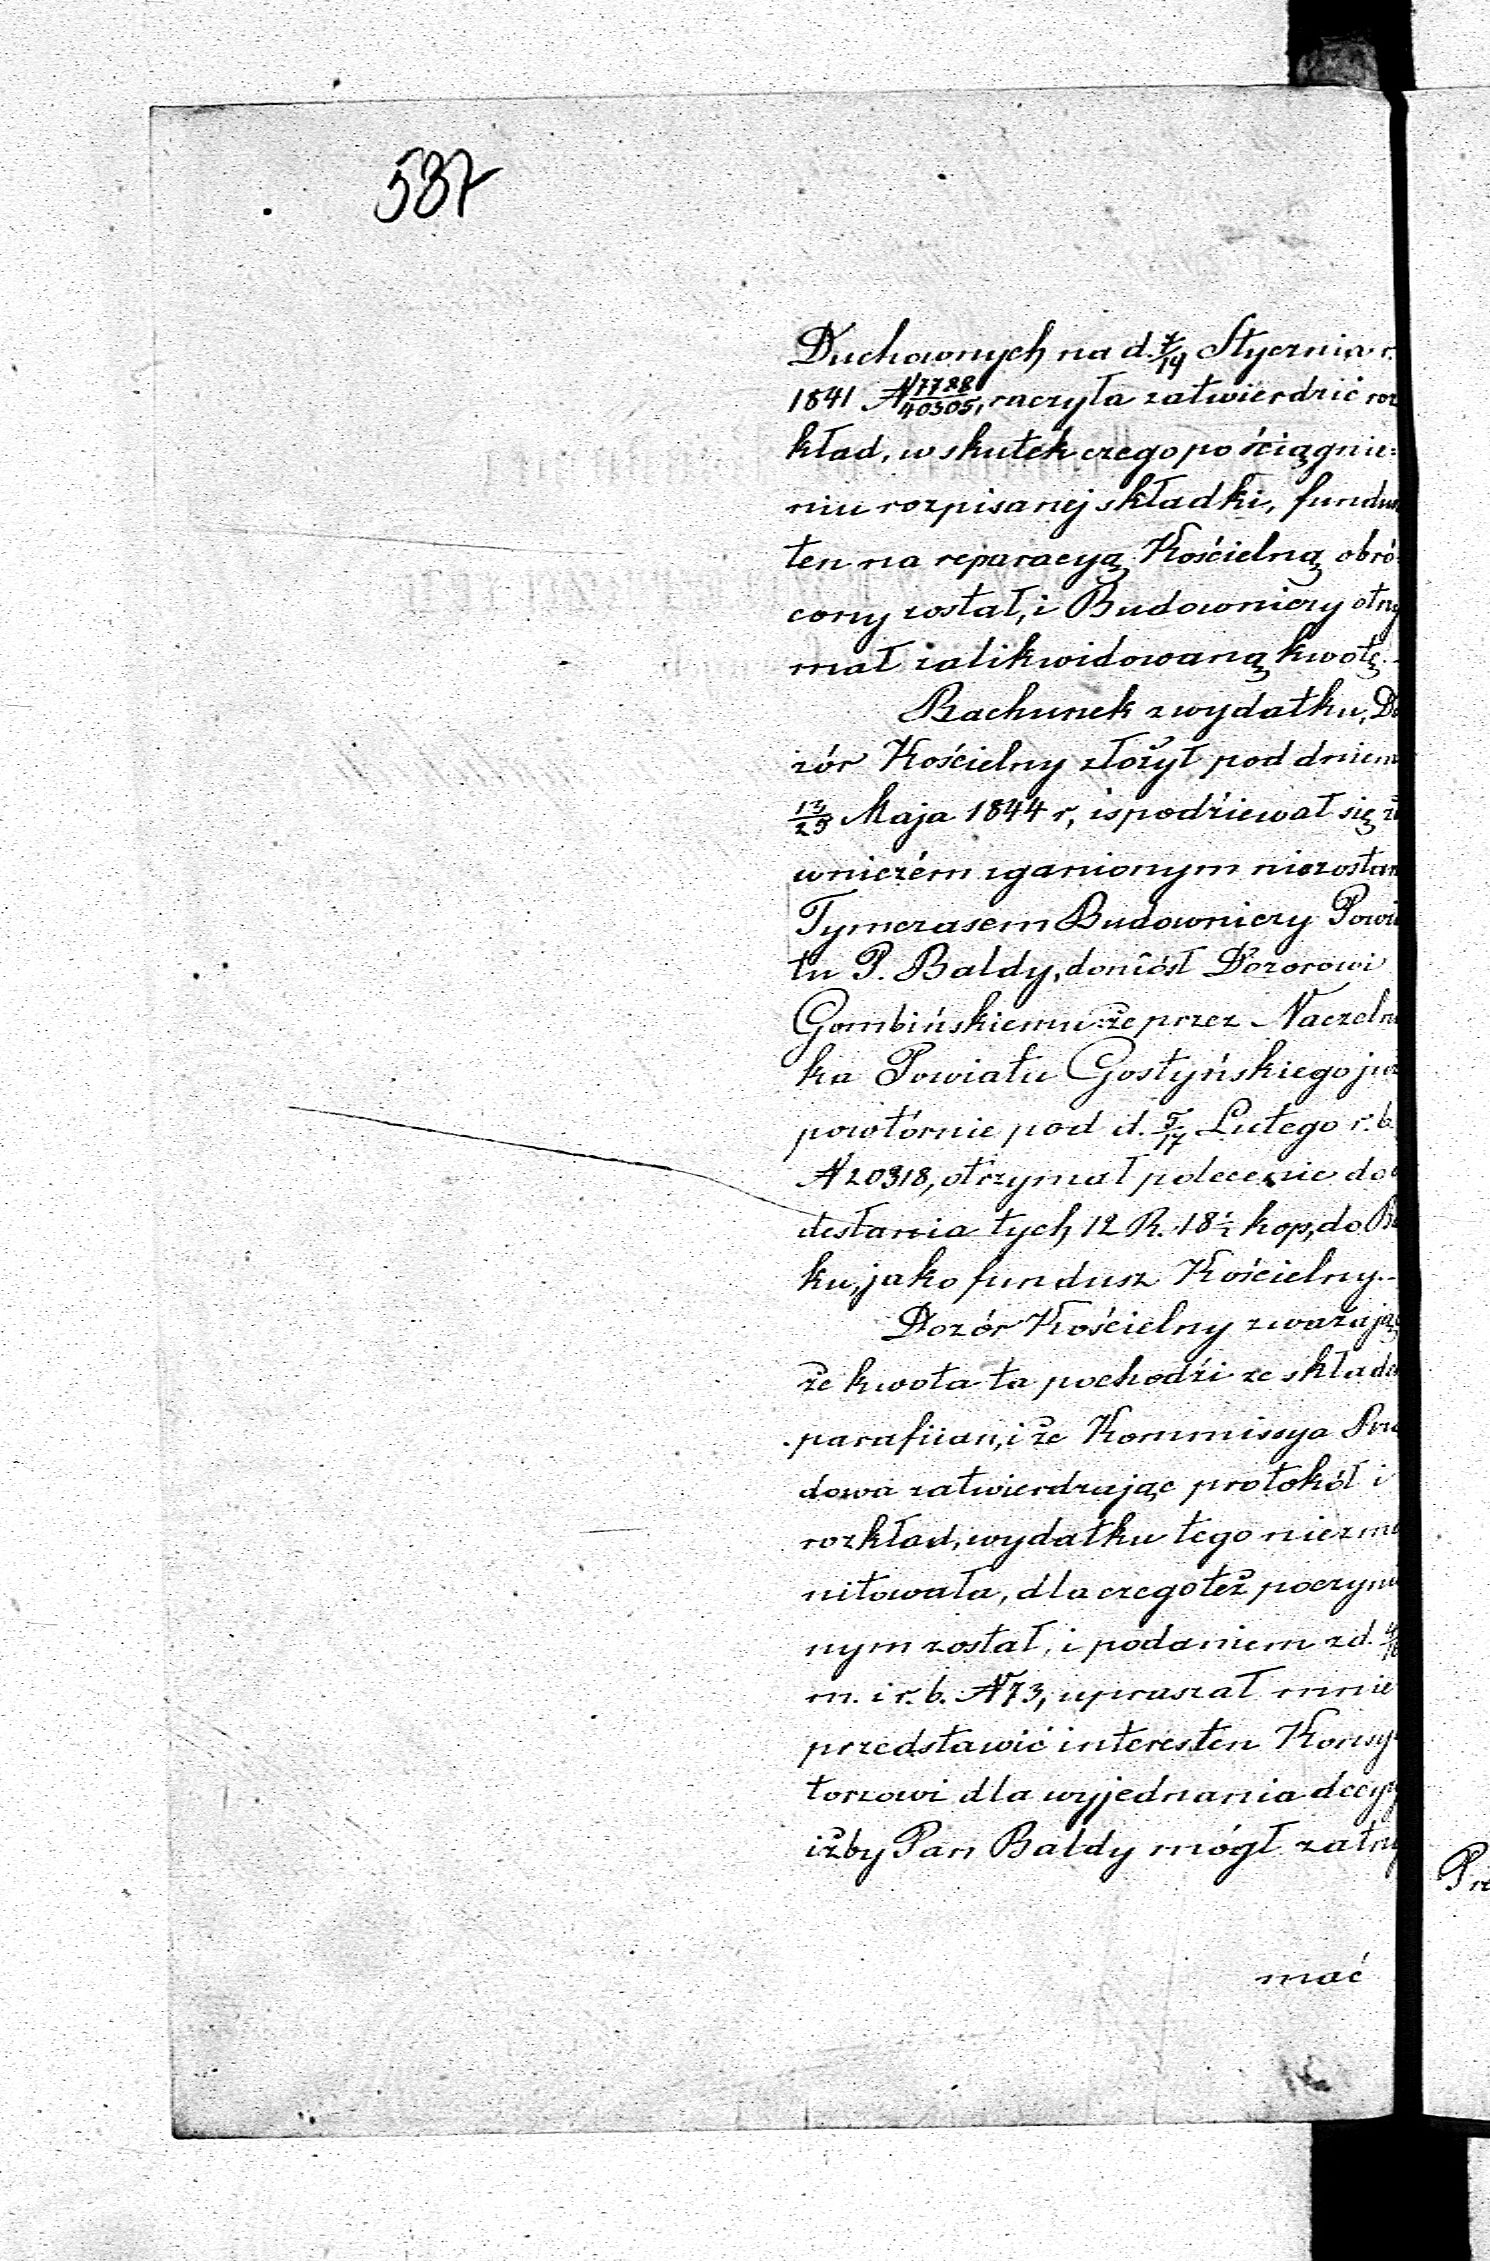 537
Duchownych na d. 2/14 Stycznia r.
1841 N 7728/40305, raczyła zatwierdzić roz
kład, w skutek czego po ściągnie=
niu rozpisanej składki, fundus
ten na reparacyą Kościelną obró
cony został, i Budowniczy otrzy
mał zalikwidowaną kwotę.
Rachunek z wydatku, Do
zór Kościelny złożył pod dniem
13/25 Maja 1844 r, i spodziewał się że
w niczém zganionym niezostan
Tymczasem Budowniczy Powia
tu P. Baldy, doniósł Dozorowi
Gombińskiemu: że przez Naczelni
ka Powiatu Gostyńskiego już
powtórnie pod d. 5/17 Lutego r. b.
N 20318, otrzymał polecenie do o
desłania tych 12 R. 18 1/2 kop, do Ba
ku, jako fundusz Kościelny.
Dozór Kościelny zważając
że kwota ta pochodzi ze składek
parafiian, i że Kommissya Rzą
dowa zatwierdzając protokół i
rozkład, wydatku tego niezmo
nitowała, dla czego też poczynio
nym został, i podaniem z d.
m. i r. b. N 73, upraszał mnie
przedstawić interes ten Konsys
torzowi dla wyjednania decyzy
iżby Pan Baldy mógł zatrzy
mać